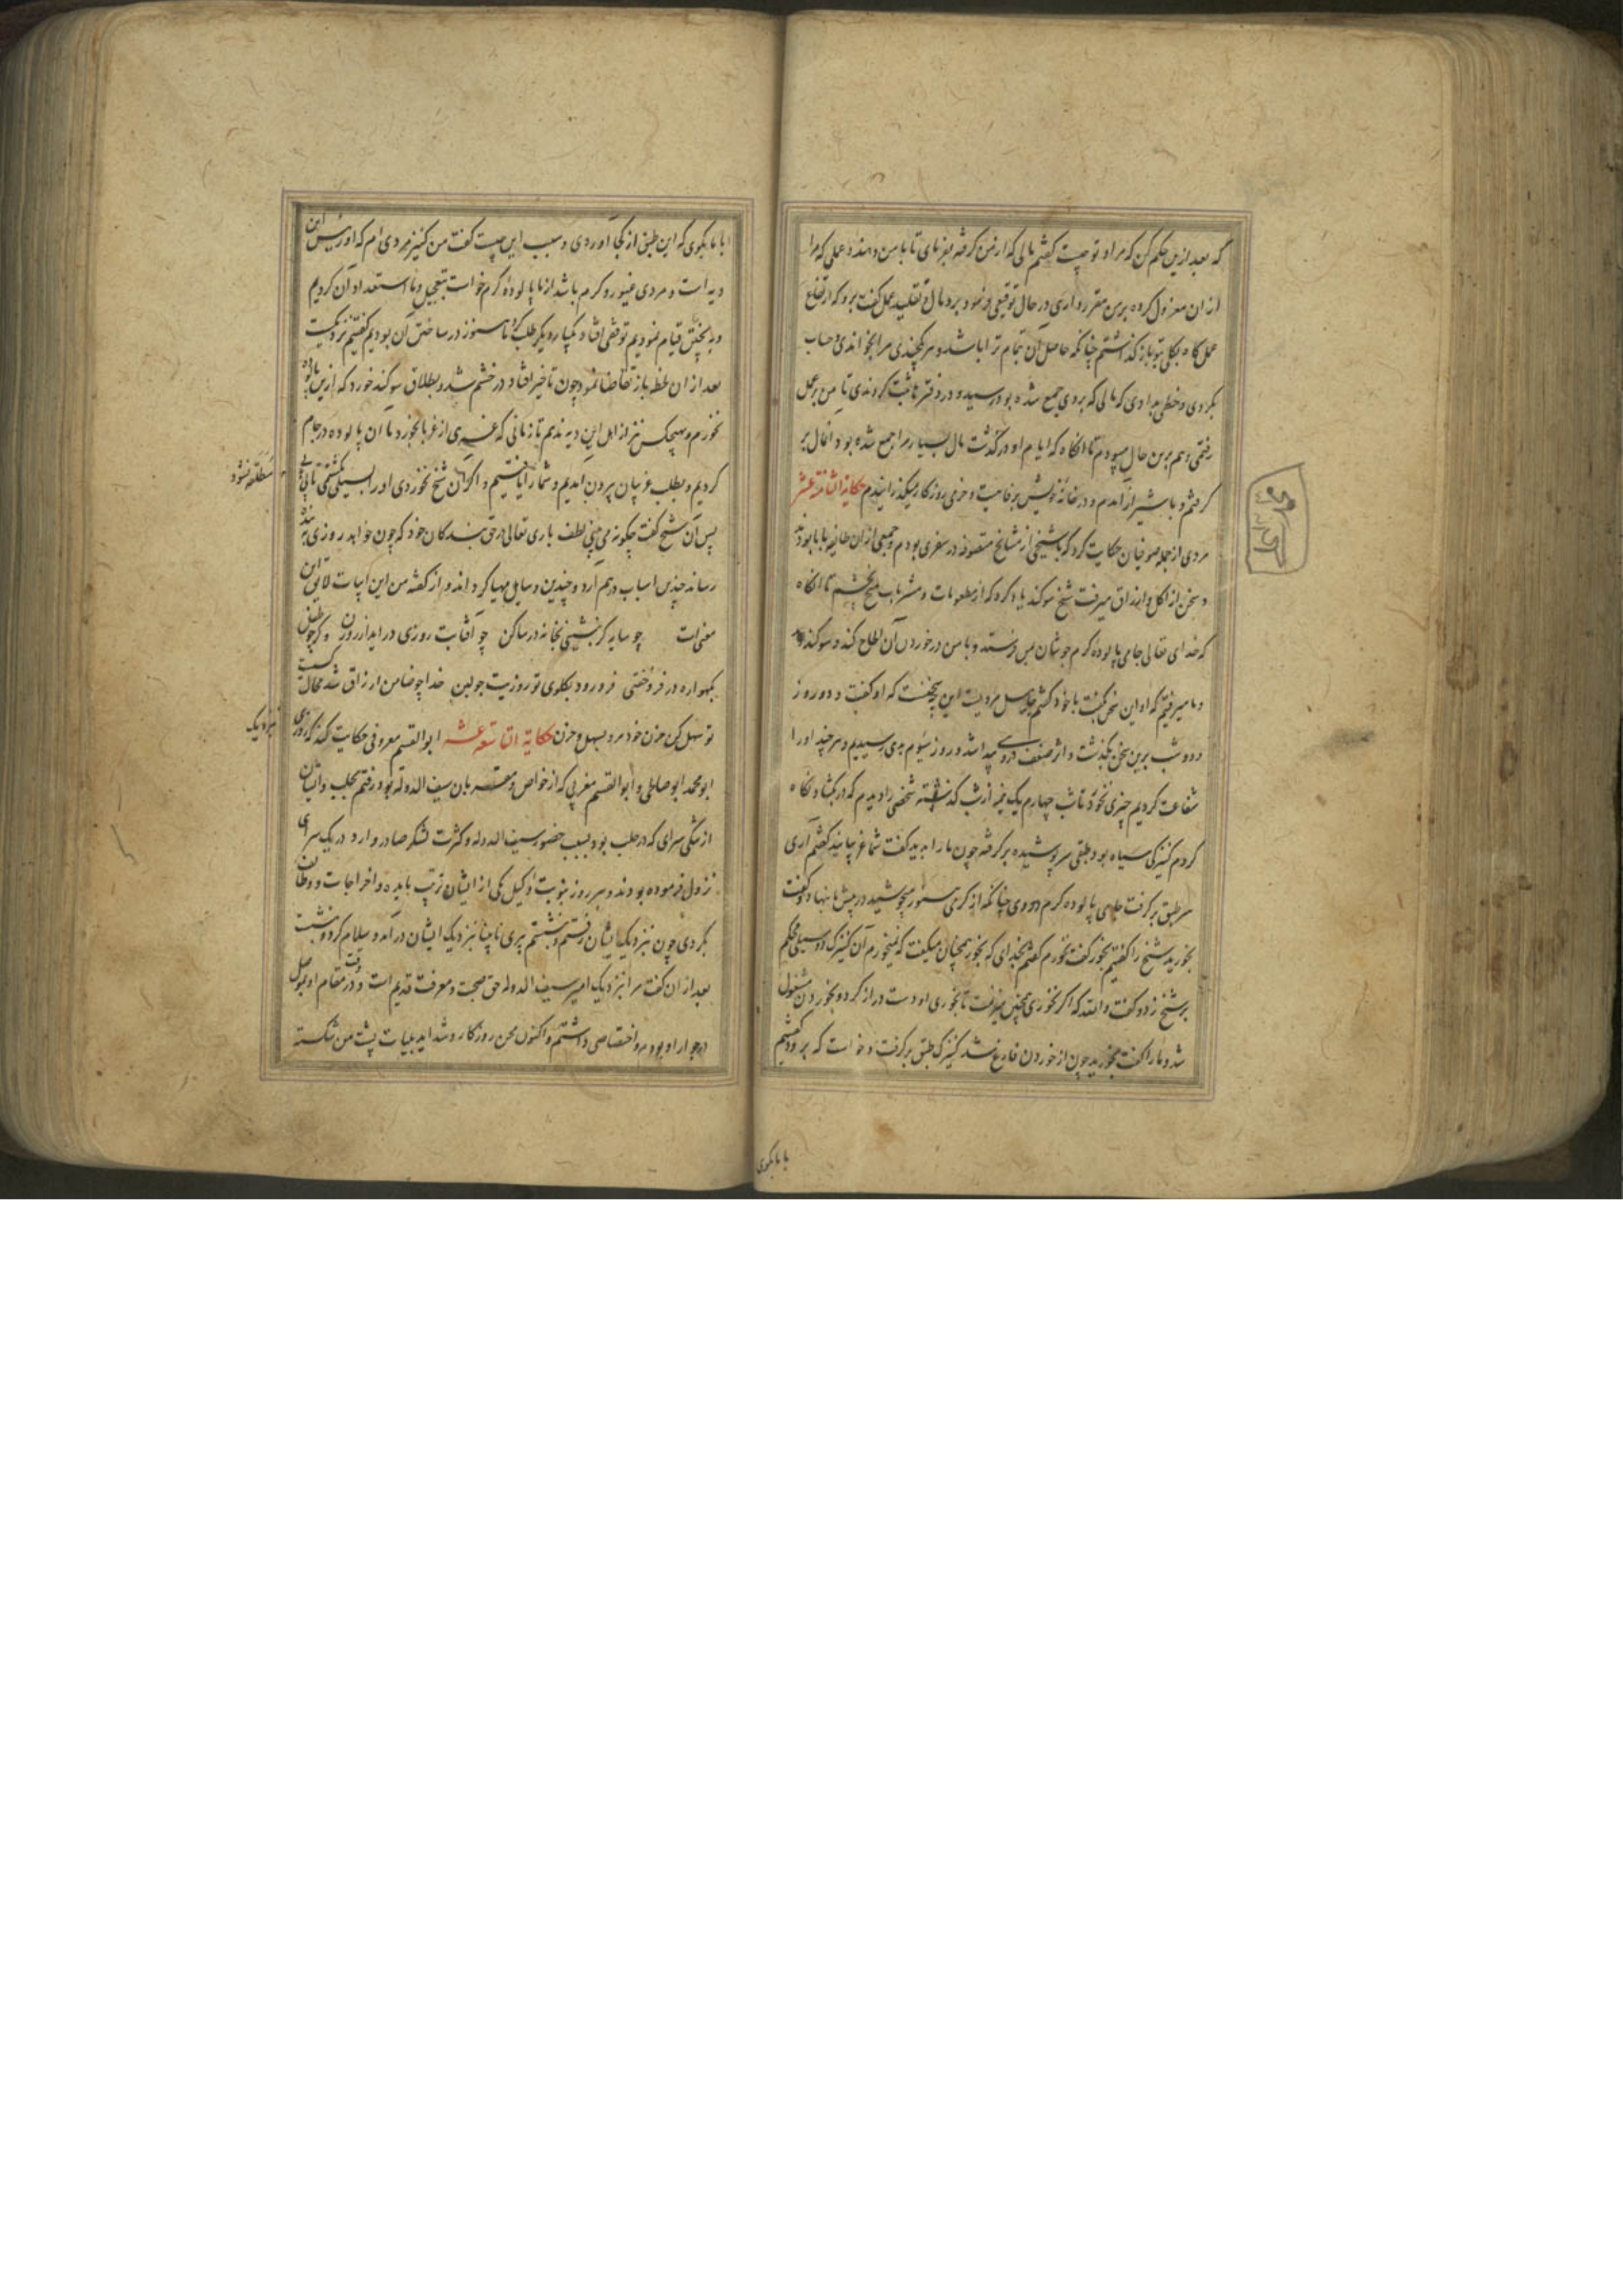 که بعد ازین حکم کن که مراد تو چیست گفتم مالی که از من گرفته بفرمای تا با من دهند و عملی که مرا
از ان معزول کرده برمن مقرر داری در حال توقیع فرمود برد مال و تقلید عمل گفت برو که ارتفاع
عمل کاه بکلی بتو باز گذاشتم چنانکه حاصل آن تمام ترا باشد و هر چندی مرا بخواندی و حساب
بکردی و خطی بدادی که مالی که بر وی جمع شده بود رسید و در دفتر ثابت کردندی تا من بر عمل
رفتمی و هم برین حال میبودم تا انکاه که ایام او در گذشت مال بسیار مرا جمع شده بود
گرفتم و با شیراز آمدم و در خانه خویش بر فاهیت و خرمی روزگار میگذرانیدم حکایة الثامنة عشر
مردی از جمله صوفیان حکایت کرد که با شیخی از مشایخ متصوفه در سفری بودم و جمعی ازان طائفه با ما بودند
و سخن از اکل و ارزاق میرفت شیخ سوکند یاد کرد که از مطعومات و مشروبات هیچ نچشم تا انکاه
که خدای تعالی جامی پالوده گرم جوشان بمن فرستد و با من در خوردن آن الحاح کند و سوکند
و ما میرفتیم که او این سخن بگفت با خود گفتم جاهل مردیست این چه سخنست که او گفت و دو روز
و دو شب برین سخن بگذشت و اثر ضعف درو پیدا شد و روز سیوم بدیهی رسیدیم و هر چند او را
شفاعت کردیم چیزی نخورد تا شب چهارم یک نیمه از شب گذشته شخصی را دیدم که در بکشاد نکاه
کردم کنیزکی سیاه بود طبقی سرپوشیده برگرفته چون ما را بدید گفت شما غریبانید گفتم آری
سر طبق برگرفت جامی پالوده گرم دودی چنانکه از گرمی هنوز میجوشید در پیش ما نهاد و گفت
بخورید شیخ را گفتیم بخور گفت نخورم گفتم بخدای که بخور همچنان میگفت که نمیخورم آن کنیزک دو سیلی محکم
بر شیخ زد و گفت والله که اگر نخوری همچنین میزنمت تا بخوری او دست دراز کرد و بخوردن مشغول
شد و ما را گفت بخورید چون از خوردن فارغ شد کنیزک طبق برگرفت و خواست که برود گفتیم
با ما بگوی
با ما بگوی که این طبق از کجا آوردی و سبب این چیست گفت من کنیز مردی ام که او رئیس این
دیه است و مردی غیور و گرم باشد از ما پالوده گرم خواست بتعجیل و ما استعداد آن کردیم
و به پختن قیام نمودیم توقفی افتاد یکبار دیگر طلب کرد ما هنوز در ساختن آن بودیم گفتیم نزدیکست
بعد از ان لحظه باز تقاضا نمود چون تاخیر افتاد در خشم شد و بطلاق سوکند خورد که ازین پالوده
نخورم و هیچکس نیز از اهل این دیه ندیم تا زمانی که غریبی از غربا بخورد ما ان پالوده در جام
کردیم و بطلب غریبان بیرون آمدیم و شما را یافتیم و اگر آن شیخ نخوردی او را بسیلی بکشتمی تا بی بی
مطلقه نشود
پس آن شیخ گفت چگونه می بینی لطف باری تعالی در حق بندگان خود که چون خواهد روزی بنده
رساند چندین اسباب درهم آرد و چندین وسایل مهیا گرداند و از گفته من این ابیات لایق این
معنی است چو سایه گر بنشینی بخانه در ساکن چو آفتاب روزی در اید از روزن و گر چو طفل
بکهواره در فروخفتی فرو رود بگلوی تو روزیت چو لبن خدا چو ضامن ارزاق شد محال است
تو سهل کن حزن خود مرو بسهل و حزن حکایة التاسعة عشر ابوالقسم معروفی حکایت کند که روزی
نزدیک
ابو محمد ابو صلحی و ابو القسم مغربی که از خواص و مقربان سیف الدوله بود رفتم بحلب و ایشان
از تنگی سرای که در حلب بود بسبب حضور سیف الدوله و کثرت لشکر صادر و وارد در یک سرای
نزول فرموده بودند و هر روز بنوبت وکیل یکی از ایشان ترتیب مایده و اخراجات و وظائف
بکردی چون نزدیک ایشان رفتم و بنشستم پیری نابینا بنزدیک ایشان در آمد و سلام کرد و بنشست
بعد از ان گفت مرا بنزدیک امیر سیف الدوله حق صحبت و معرفت قدیم است و در وقت مقام او بموصل
در جوار او بودم و اختصاصی داشتم و اکنون محن روزگار و شداید بلیات پشت من شکسته